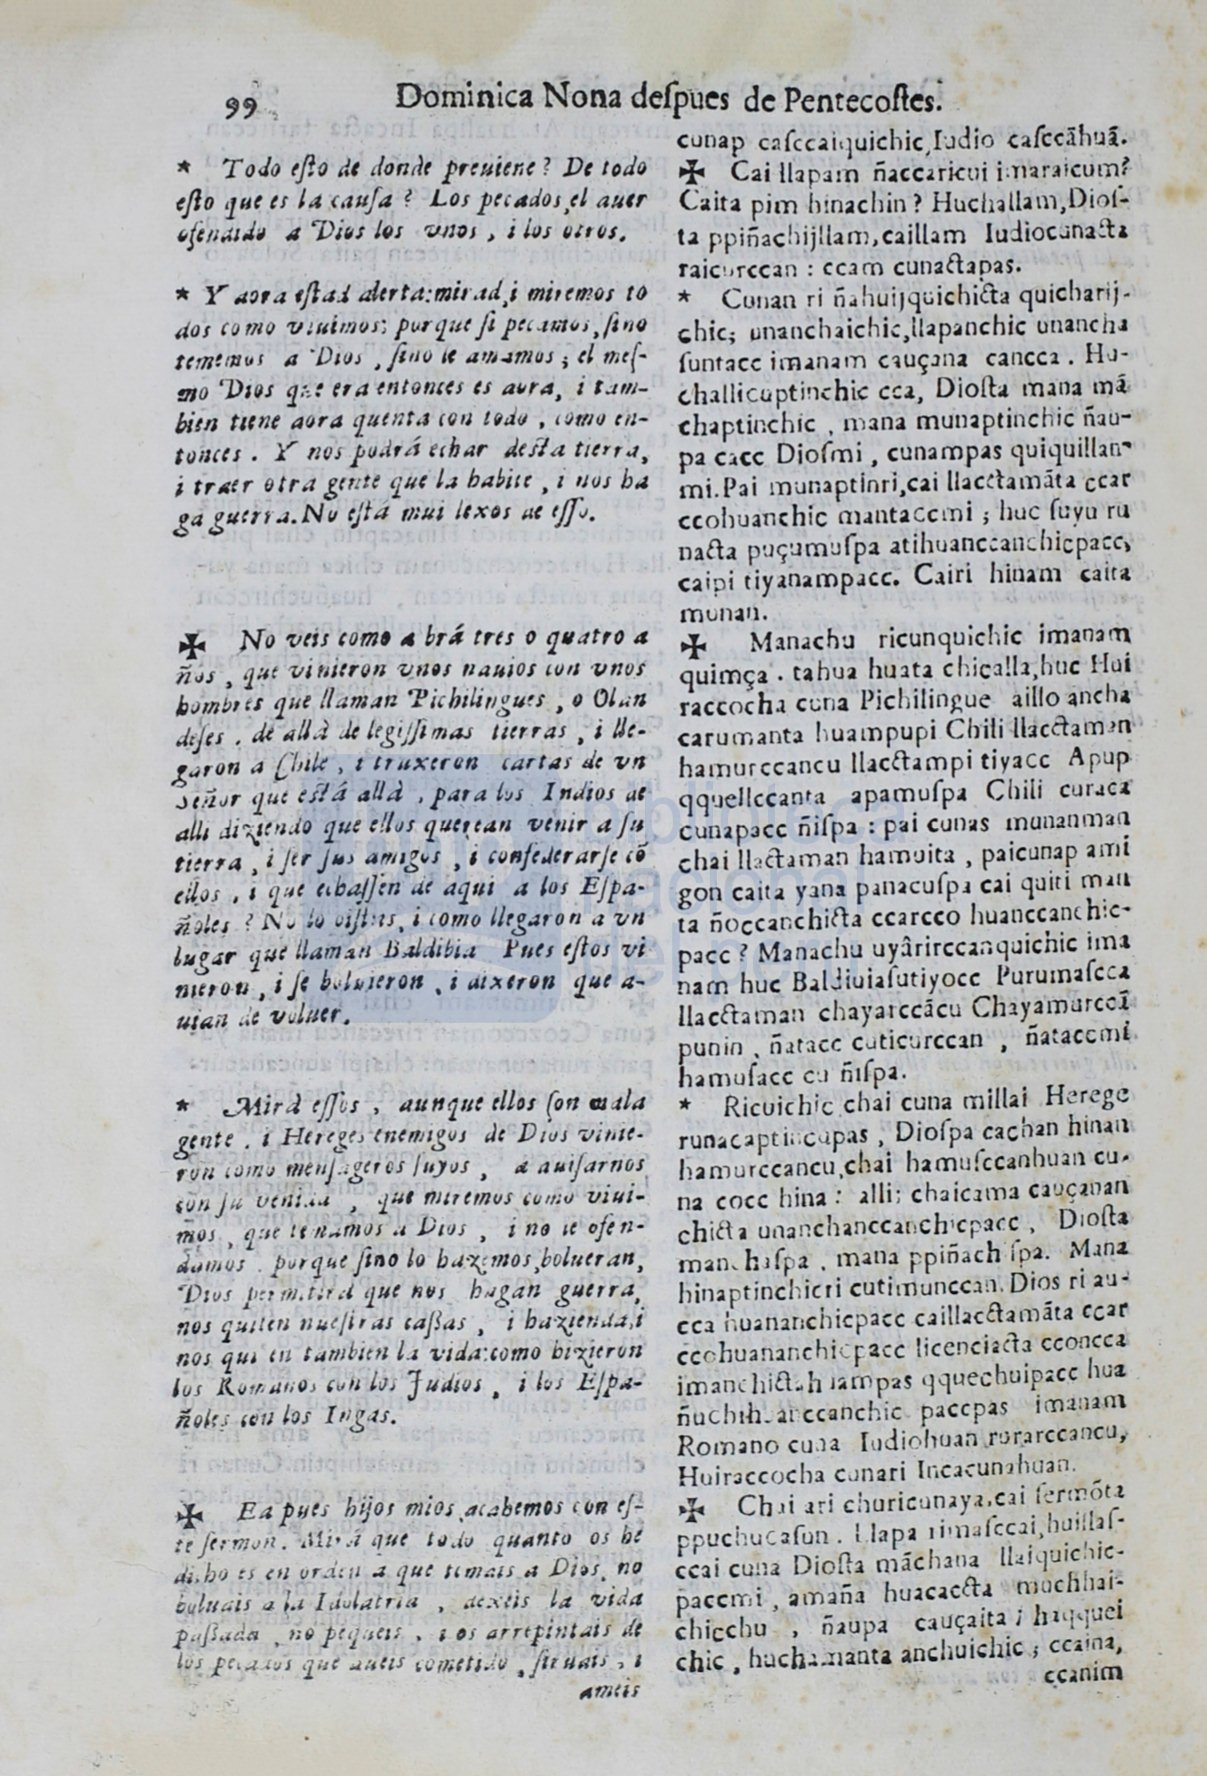 99
Dominica Nona deſpues de Pentecoſtes.
* Todo eſto de donde preuiene? De todo
eſto que es la cauſa? Los pecados, el auer
ofendido a Dios los vnos, i los otros.
* Y aora eſtad alerta: mirad, i miremos to
dos como viuimos; porque ſi pecamos, ſino
tememos a Dios, ſino le amamos; el meſ-
mo Dios que era entonces es aora, i tam-
bien tiene aora quenta con todo, como en-
tonces. Y nos podrá echar deſta tierra,
i traer otra gente que la habite, i nos ha
ga guerra. No eſtá mui lexos de eſſo.
✠ No veis como a brá tres o quatro a
ños, que vinieron vnos nauios con vnos
hombres que llaman Pichilingues, o Olan
deſes, de allà de legiſſimas tierras, i lle-
garon a Chile, i truxeron cartas de vn
Señor que eſtá allà, para los Indios de
alli diziendo que ellos querean venir a ſu
tierra, i ſer ſus amigos, i confederarſe cõ
ellos, i que echaſſen de aqui a los Eſpa-
ñoles? No lo oiſteis, i como llegaron a vn
lugar que llaman Baldibia Pues eſtos vi
nieron, i ſe boluieron, i dixeron que a-
uian de voluer.
* Mirà eſſos, aunque ellos ſon mala
gente, i Hereges enemigos de Dios vinie-
ron como menſageros ſuyos, a auiſarnos
con ſu venida, que miremos como viui-
mos, que temamos a Dios, i no le ofen-
damos, porque ſino lo hazemos, bolueran,
Dios permitirá que nos hagan guerra,
nos quiten nueſtras caſſas, i hazienda, i
nos quiten tambien la vida: como hizieron
los Romanos con los Judios, i los Eſpa-
ñoles con los Ingas.
✠ Ea pues hijos mios, acabemos con eſ-
te ſermon. Mirá que todo quanto os he
dicho es en orden a que temais a Dios, no
boluais a la Idolatria, dexeis la vida
paſſada, no pequeis, i os arrepintais de
los pecados que aueis cometido, ſiruais, i
ameis
cunap caſccaiquichic, Iudio caſccãhuã.
✠ Cai llapam ñaccaricui imaraicum?
Caita pim hinachin? Huchallam, Dioſ-
ta ppiñachijllam, caillam Iudiocunacta
raicurccan: ccam cunactapas.
* Cunan ri ñahuijquichicta quicharij-
chic; unanchaichic, llapanchic unancha
ſuntacc imanam cauçana cancca. Hu-
challicuptinchic cca, Dioſta mana mã
chaptinchic, mana munaptinchic ñau-
pa cacc Dioſmi, cunampas quiquillan-
mi. Pai munaptinri, cai llacctamãta ccar
ccohuanchic mantaccmi; huc ſuyu ru
nacta puçumuſpa atihuanccanchicpacc,
caipi tiyanampacc. Cairi hinam caita
munan.
✠ Manachu ricunquichic imanam
quimça. tahua huata chicalla, huc Hui
raccocha cuna Pichilingue aillo ancha
carumanta huampupi Chili llacctaman
hamurccancu llacctampi tiyacc Apup
qquellccanta apamuſpa Chili curaca
cunapacc ñiſpa: pai cunas munanman
chai llactaman hamuita, paicunap ami
gon caita yana panacuſpa cai quiti man
ta ñoccanchicta ccarcco huanccanchic-
pacc? Manachu uyârirccanquichic ima
nam huc Baldiuiaſutiyocc Purumaſcca
llacctaman chayarccãcu Chayamurccã
punin, ñatacc cuticurccan, ñataccmi
hamuſacc cu ñiſpa.
* Ricuichic chai cuna millai Herege
runacaptincupas, Dioſpa cachan hinan
hamurccancu, chai hamuſccanhuan cu-
na cocc hina: alli; chaicama cauçanan
chicta unanchanccanchicpacc, Dioſta
manchaſpa, mana ppiñachiſpa. Mana
hinaptinchicri cutimunccan, Dios ri au-
cca huananchicpacc caillacctamãta ccar
ccohuananchicpacc licenciacta cconcca
imanchictahuampas qquechuipacc hua
ñuchihuanccanchic paccpas imanam
Romano cuna Iudiohuan rurarccancu,
Huiraccocha cunari Incacunahuan.
✠ Chai ari churicunaya, cai ſermõta
ppuchucaſun. Llapa rimaſccai, huillaſ-
ccai cuna Dioſta mãchana llaiquichic-
paccmi, amaña huacaccta muchhai-
chicchu, ñaupa cauçaita; haqquei
chic, huchamanta anchuichic; ccaina,
ccanim